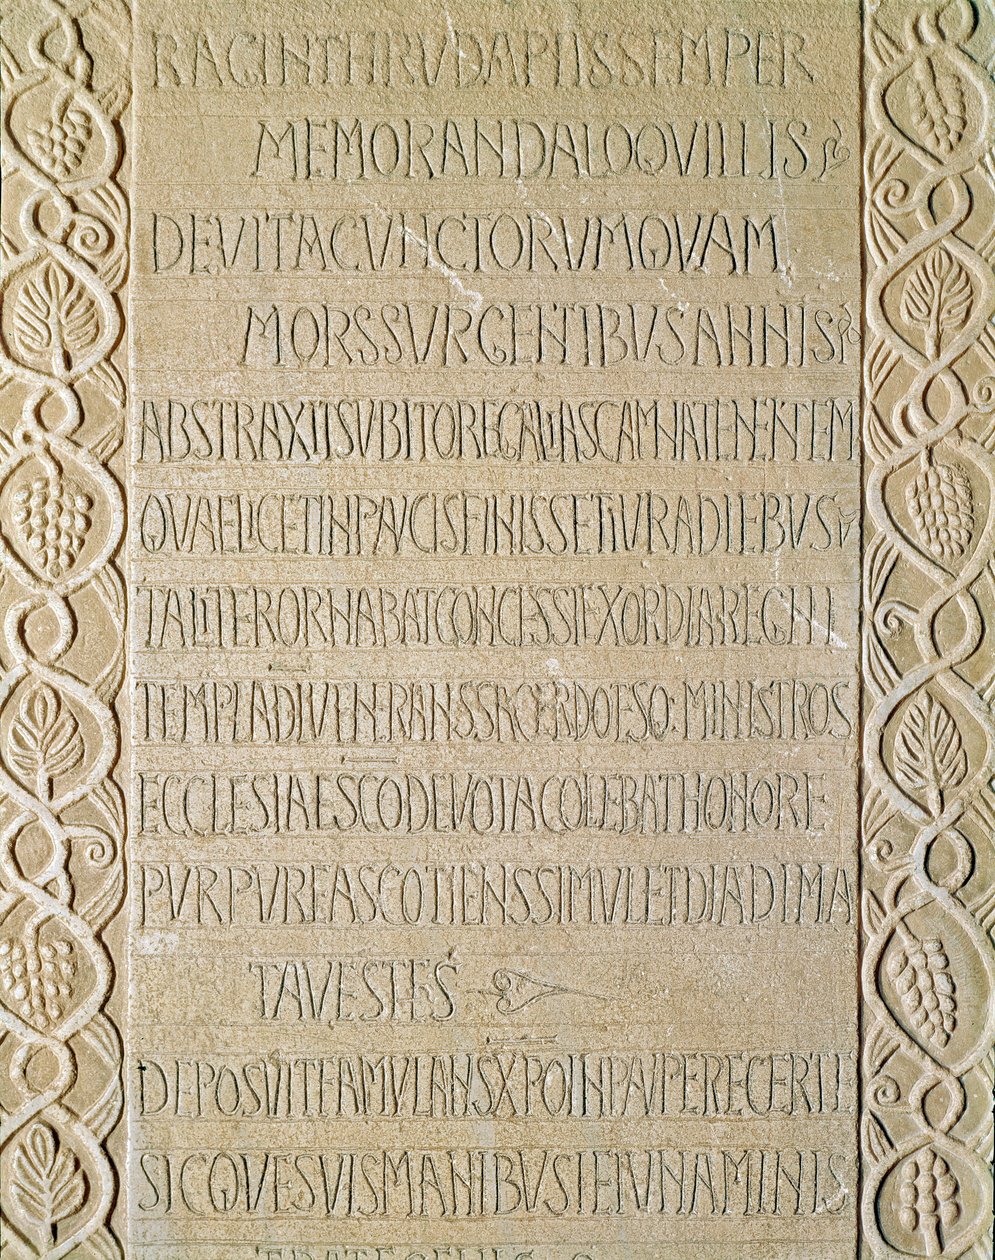 RAGINTHRVDAPIISSEMPER
MEMORANDALOQVILLIS
DEVITACVNCTORVMQVAM
MORSSVRGENTIBVSANNIS
ABSTRAXITSVBITOREGALIASCAMNATENENTEM
QVAELICETINPAVCISFINISSETIVRADIEBVS
TALITERORNABATCONCESSIEXORDIAREGNI
TEMPLADIVENERANSSACERDOTESQ:MINISTROS
ECCLESIAESCODEVOTACOLEBATHONORE
PVRPVREASCOTIENSSIMVLETDIADIMA
TAVESTES
DEPOSVITFAMVLANSXPOINPAVPERECERTE
SICQVESVISMANIBVSIEIVNAMINIS